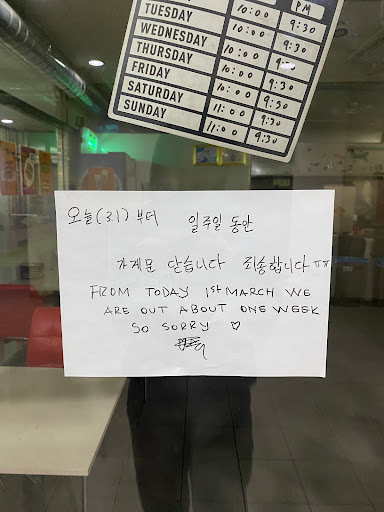 PM
TUESDAY 10:00 9:30
WEDNESDAY 10:00 9:30
THURSDAY 10:00 9:30
FRIDAY 10:00 9:30
SATURDAY 10:00 9:30
SUNDAY 11:00 9:30
오늘(3.1) 부터 일주일 동안
가게문 닫습니다 죄송합니다 ㅠㅠ
FROM TODAY 1st MARCH WE
ARE OUT ABOUT ONE WEEK
SO SORRY ♡